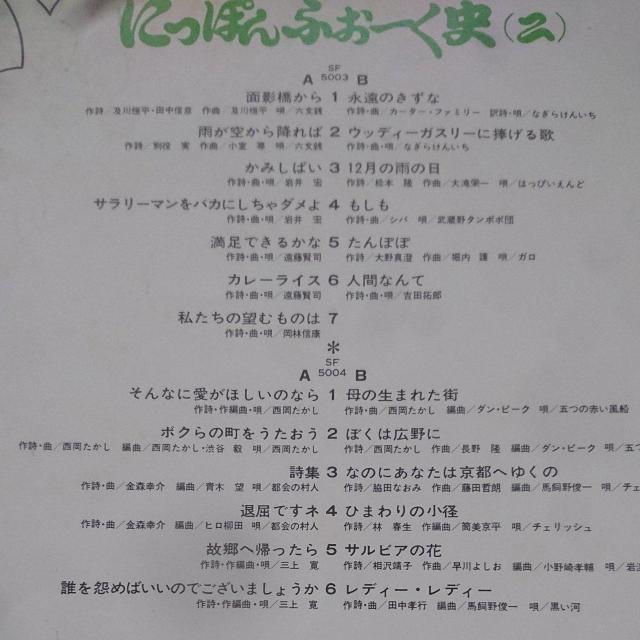 にっぽんふぉーく史(二)
SF
A 5003 B
面影橋から 1 永遠のきずな
作詩/及川恒平・田中信彦 作曲/及川恒平 唄/六文銭 作詩・曲/カーター・ファミリー 訳詩・唄/なぎらけんいち
雨が空から降れば 2 ウッディーガスリーに捧げる歌
作詩/別役 実 作曲/小室 等 唄/六文銭 作詩・曲・唄/なぎらけんいち
かみしばい 3 12月の雨の日
作詩・曲・唄/岩井 宏 作詩/松本 隆 作曲/大滝栄一 唄/はっぴいえんど
サラリーマンをバカにしちゃダメよ 4 もしも
作詩・曲・唄/岩井 宏 作詩・曲/シバ 唄/武蔵野タンポポ団
満足できるかな 5 たんぽぽ
作詩・曲・唄/遠藤賢司 作詩/大野真澄 作曲/堀内 護 唄/ガロ
カレーライス 6 人間なんて
作詩・曲・唄/遠藤賢司 作詩・曲・唄/吉田拓郎
私たちの望むものは 7
作詩・曲・唄/岡林信康
*
SF
A 5004 B
そんなに愛がほしいのなら 1 母の生まれた街
作詩・作編曲・唄/西岡たかし 作詩・曲/西岡たかし 編曲/ダン・ビーク 唄/五つの赤い風船
ボクらの町をうたおう 2 ぼくは広野に
作詩・曲/西岡たかし 編曲/西岡たかし・渋谷 毅 唄/西岡たかし 作詩/西岡たかし 作曲/長野 隆 編曲/ダン・ビーク 唄/五つ
詩集 3 なのにあなたは京都へゆくの
作詩・曲/金森幸介 編曲/青木 望 唄/都会の村人 作詩/脇田なおみ 作曲/藤田哲朗 編曲/馬飼野俊一 唄/チェ
退屈ですネ 4 ひまわりの小径
作詩・曲/金森幸介 編曲/ヒロ柳田 唄/都会の村人 作詩/林 春生 作編曲/筒美京平 唄/チェリッシュ
故郷へ帰ったら 5 サルビアの花
作詩・作編曲・唄/三上 寛 作詩/相沢靖子 作曲/早川よしお 編曲/小野崎孝輔 唄/岩渕
誰を怨めばいいのでございましょうか 6 レディー・レディー
作詩・作編曲・唄/三上 寛 作詩・曲/田中孝行 編曲/馬飼野俊一 唄/黒い河